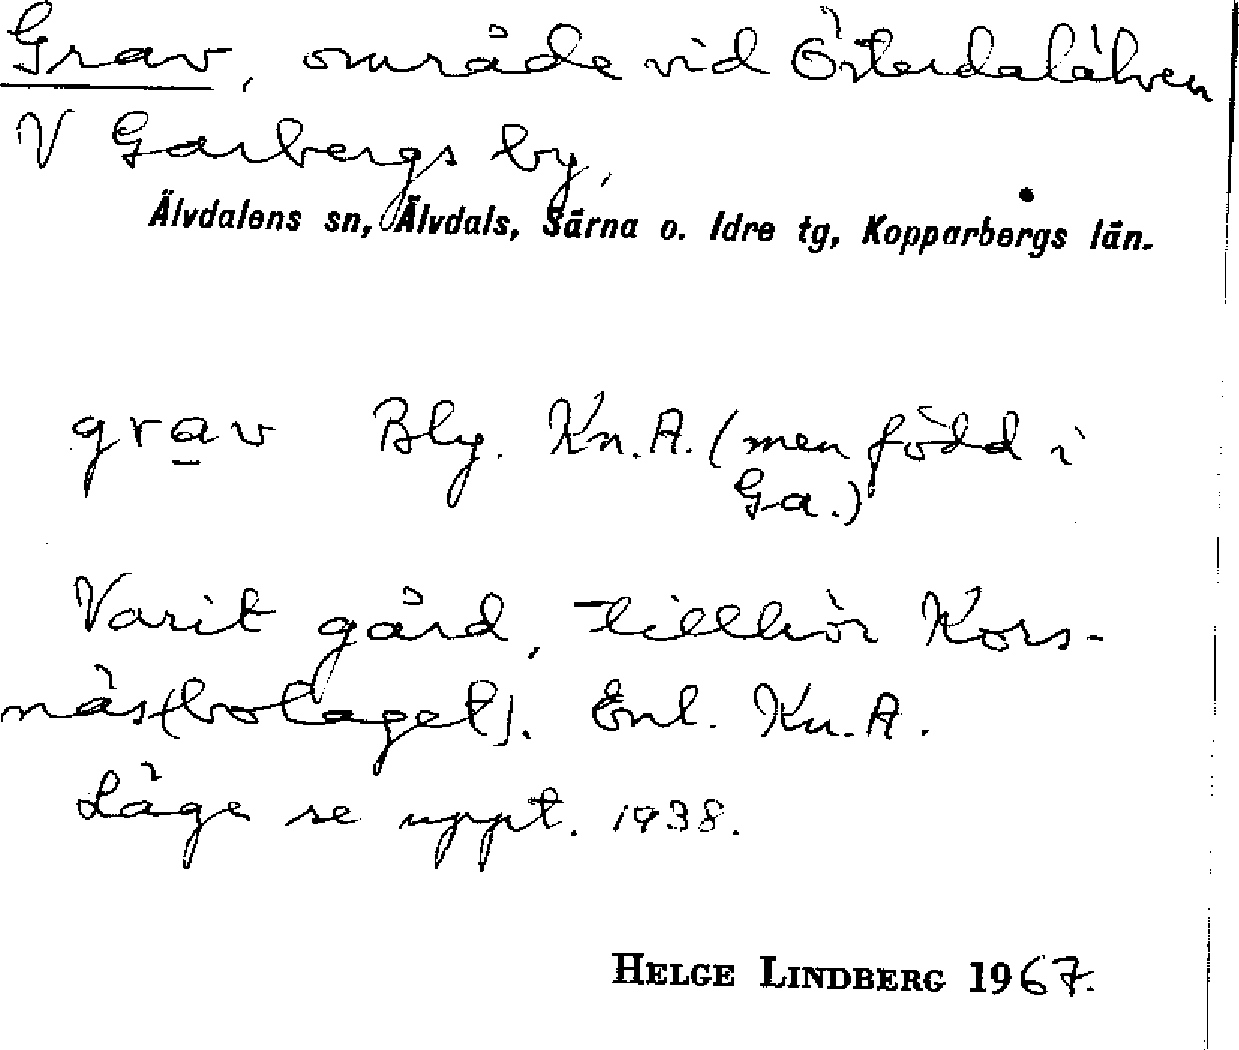 Grav, område vid Österdalälven
V Garbergs by,
Älvdalens sn, Älvdals, Särna o. Idre tg, Kopparbergs län.
grav Bly. Kn.A. (men född i
Ga.)
Varit gård, tillhör Kors-
näs(bolaget). Enl. Kn.A.
Läge se uppt. 1938.
HELGE LINDBERG 1967.